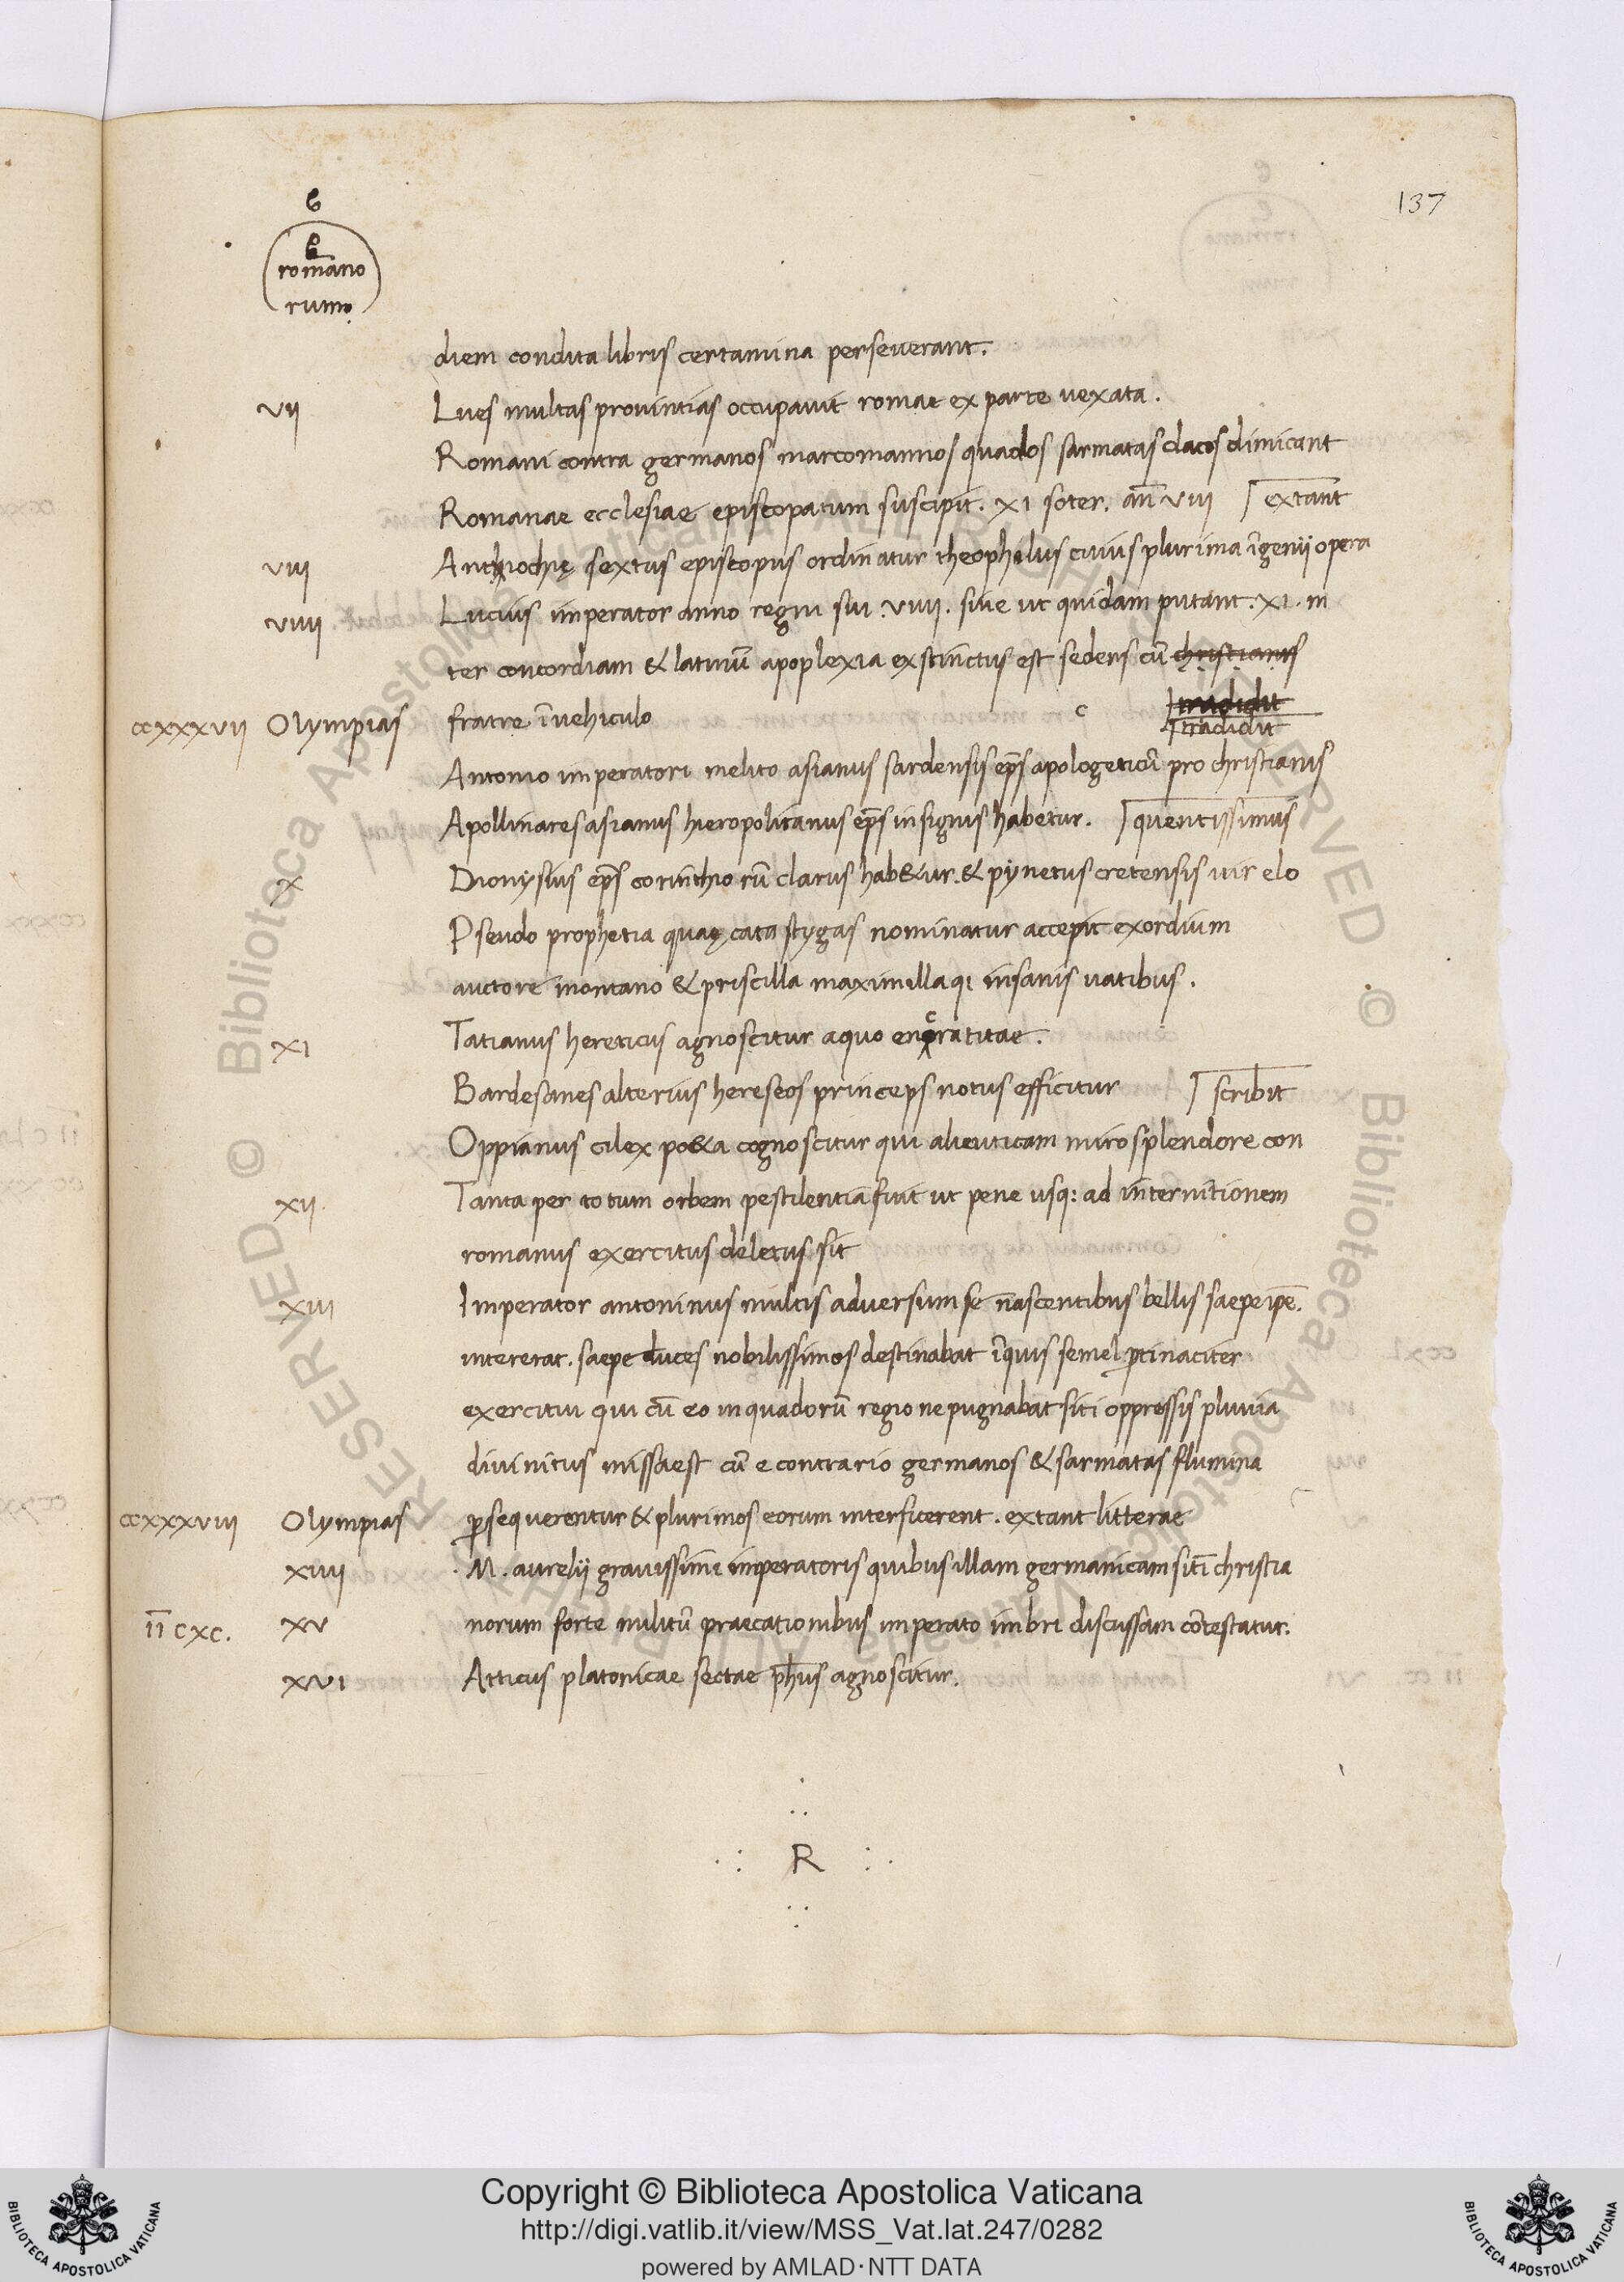 137
romano
rum
diem condita libris certamina perseuerant.
vii Lues multas prouintias occupauit romae ex parte uexata.
Romani contra germanos marcomannos quados sarmatas dacos dimicant
Romanae ecclesiae episcopatum suscipit. xi soter. an̄ viii ⌈ extant
viii Anthiochię sextus episcopus ordinatur theophilus cuius plurima īgenii opera
viiii Lucius imperator anno regni sui . viiii . siue ut quidam putant . xi . in
ter concordiam & latinū apoplexia exstinctus est sedens cū christianis
ccxxxvii Olympias fratre ī uehiculo c ⌈tradidit
⌈tradidit
Antonio imperatori melito asianus sardensis ep̄s apologeticū pro christianis
Apollinares asianus hieropolitanus ep̄s insignis habetur. ⌈quentissimus
x Dionysius ep̄s corinthiorū clarus hab&ur. & pynetus cretensis uir elo
Pseudo prophetia quaę cata stygas nominatur accepit exordium
auctore montano & priscilla maximillaq: insanis uatibus.
xi Tatianus hereticus agnoscitur a quo encratitae.
Bardesanes alterius hereseos princeps notus efficitur ⌈ scribit
Oppianus cilex po&a cognoscitur qui alieuticam miro splendore con
xii. Tanta per totum orbem pestilentia fuit ut pene usq: ad internitionem
romanus exercitus deletus sit
xiii Imperator antoninus multis aduersum se nascentibus bellis saepe ip̄e.
intererat. saepe duces nobilissimos destinabat ī quis semel ꝑtinaciter
exercitui qui cū eo in quadorū regione pugnabat siti oppressis pluuia
diuinitus missa est cū e contrario germanos & sarmatas flumina
ccxxxviii Olympias ꝑsequerentur & plurimos eorum interficerent. extant litterae
xiiii . M. aurelii grauissimi imperatoris quibus illam germanicam sitī christia
īī cxc. xv norum forte militū praecationibus imperato imbri discussam cōtestatur.
xvi Atticus platonicae sectae ph̄us agnoscitur.
R
Copyright © Biblioteca Apostolica Vaticana
http://digi.vatlib.it/view/MSS_Vat.lat.247/0282
powered by AMLAD·NTT DATA
BIBLIOTECA APOSTOLICA VATICANA
BIBLIOTECA APOSTOLICA VATICANA